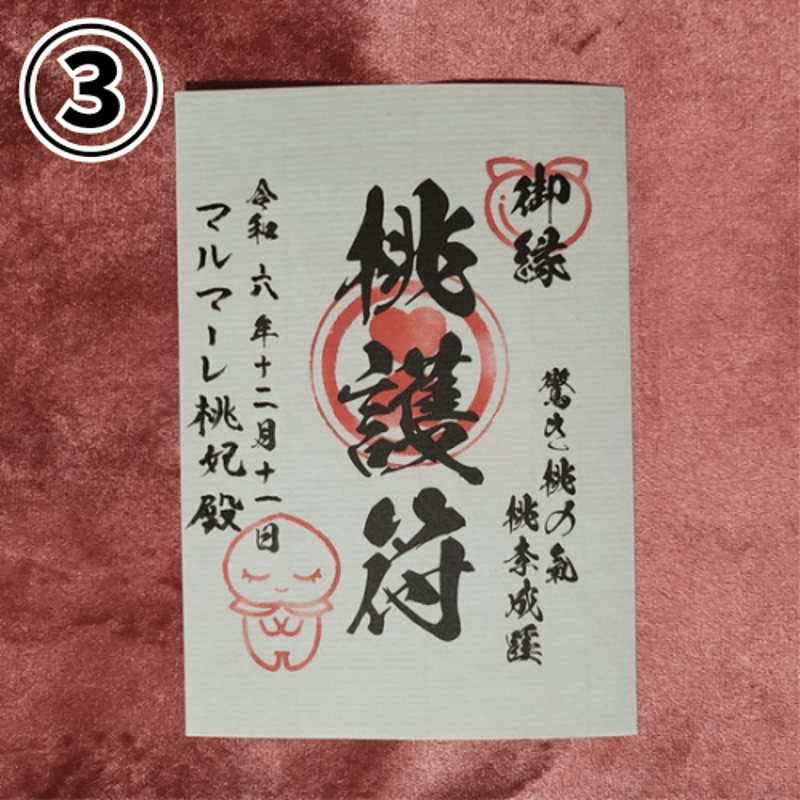 ③
御縁
驚き桃の氣
桃奈成蹊
桃護符
令和六年十二月十一日
マルマーレ桃妃殿